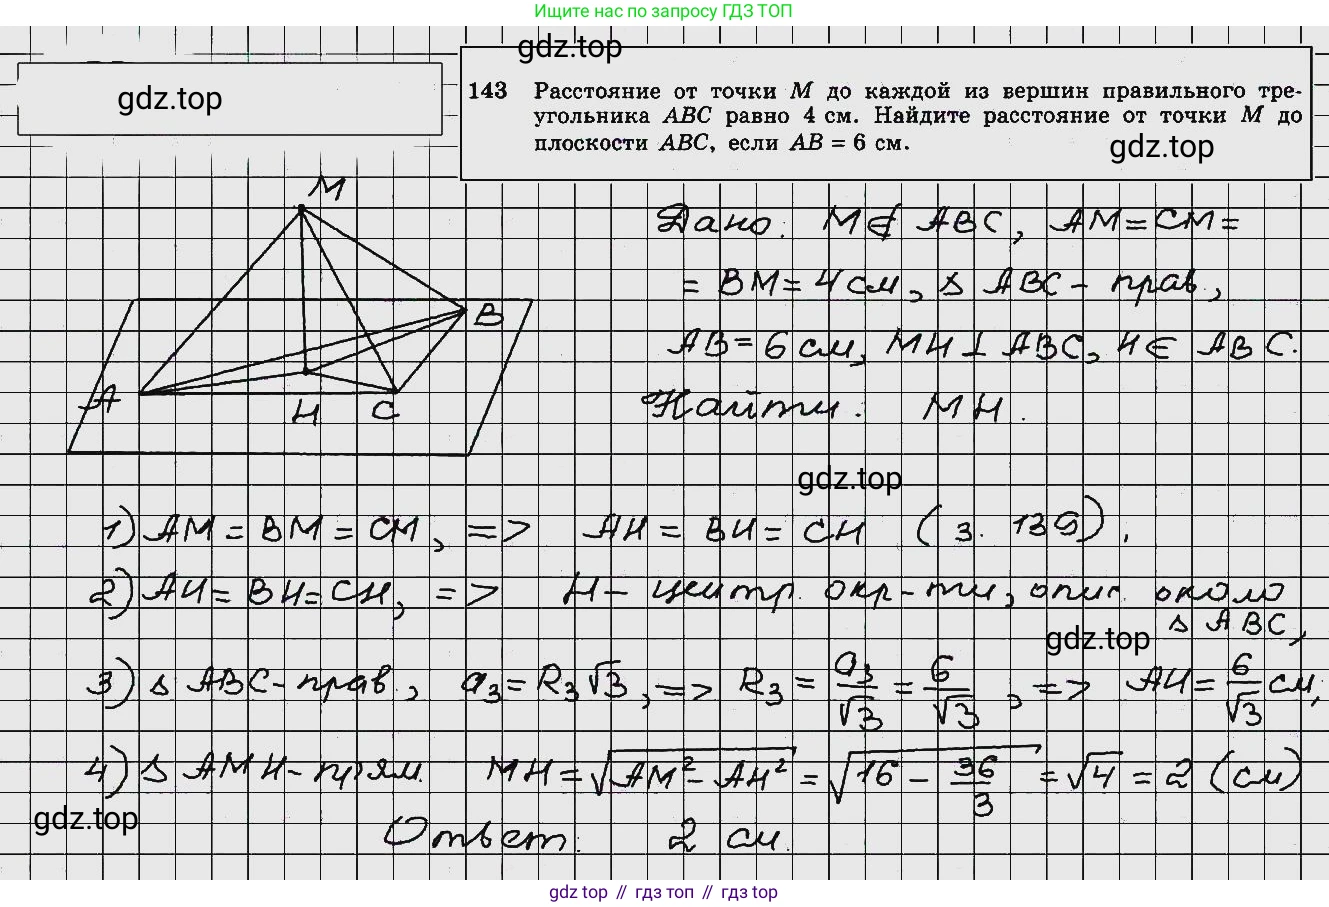 Ищите нас по запросу ГДЗ ТОП
gdz.top
gdz.top
143 Расстояние от точки M до каждой из вершин правильного тре-
угольника ABC равно 4 см. Найдите расстояние от точки M до
плоскости ABC, если AB = 6 см.
gdz.top
M
B
A
H
C
Дано: M∉ ABC, AM=CM=
= BM=4см, Δ ABC- прав,
AB=6см, MH⊥ABC, H∈ ABC.
Найти: MH.
gdz.top
1) AM=BM=CM, => AH=BH=CH (з. 139).
2) AH=BH=CH, => H- центр. окр-ти, опис. около
Δ ABC,
gdz.top
3) Δ ABC-прав, a₃=R₃√3, => R₃ = a₃/√3 = 6/√3, => AH= 6/√3 см,
4) Δ AMH-прям. MH=√AM²-AH² = √16 - 36/3 = √4 = 2 (см)
gdz.top
Ответ: 2 см.
gdz.top // гдз топ // gdz top